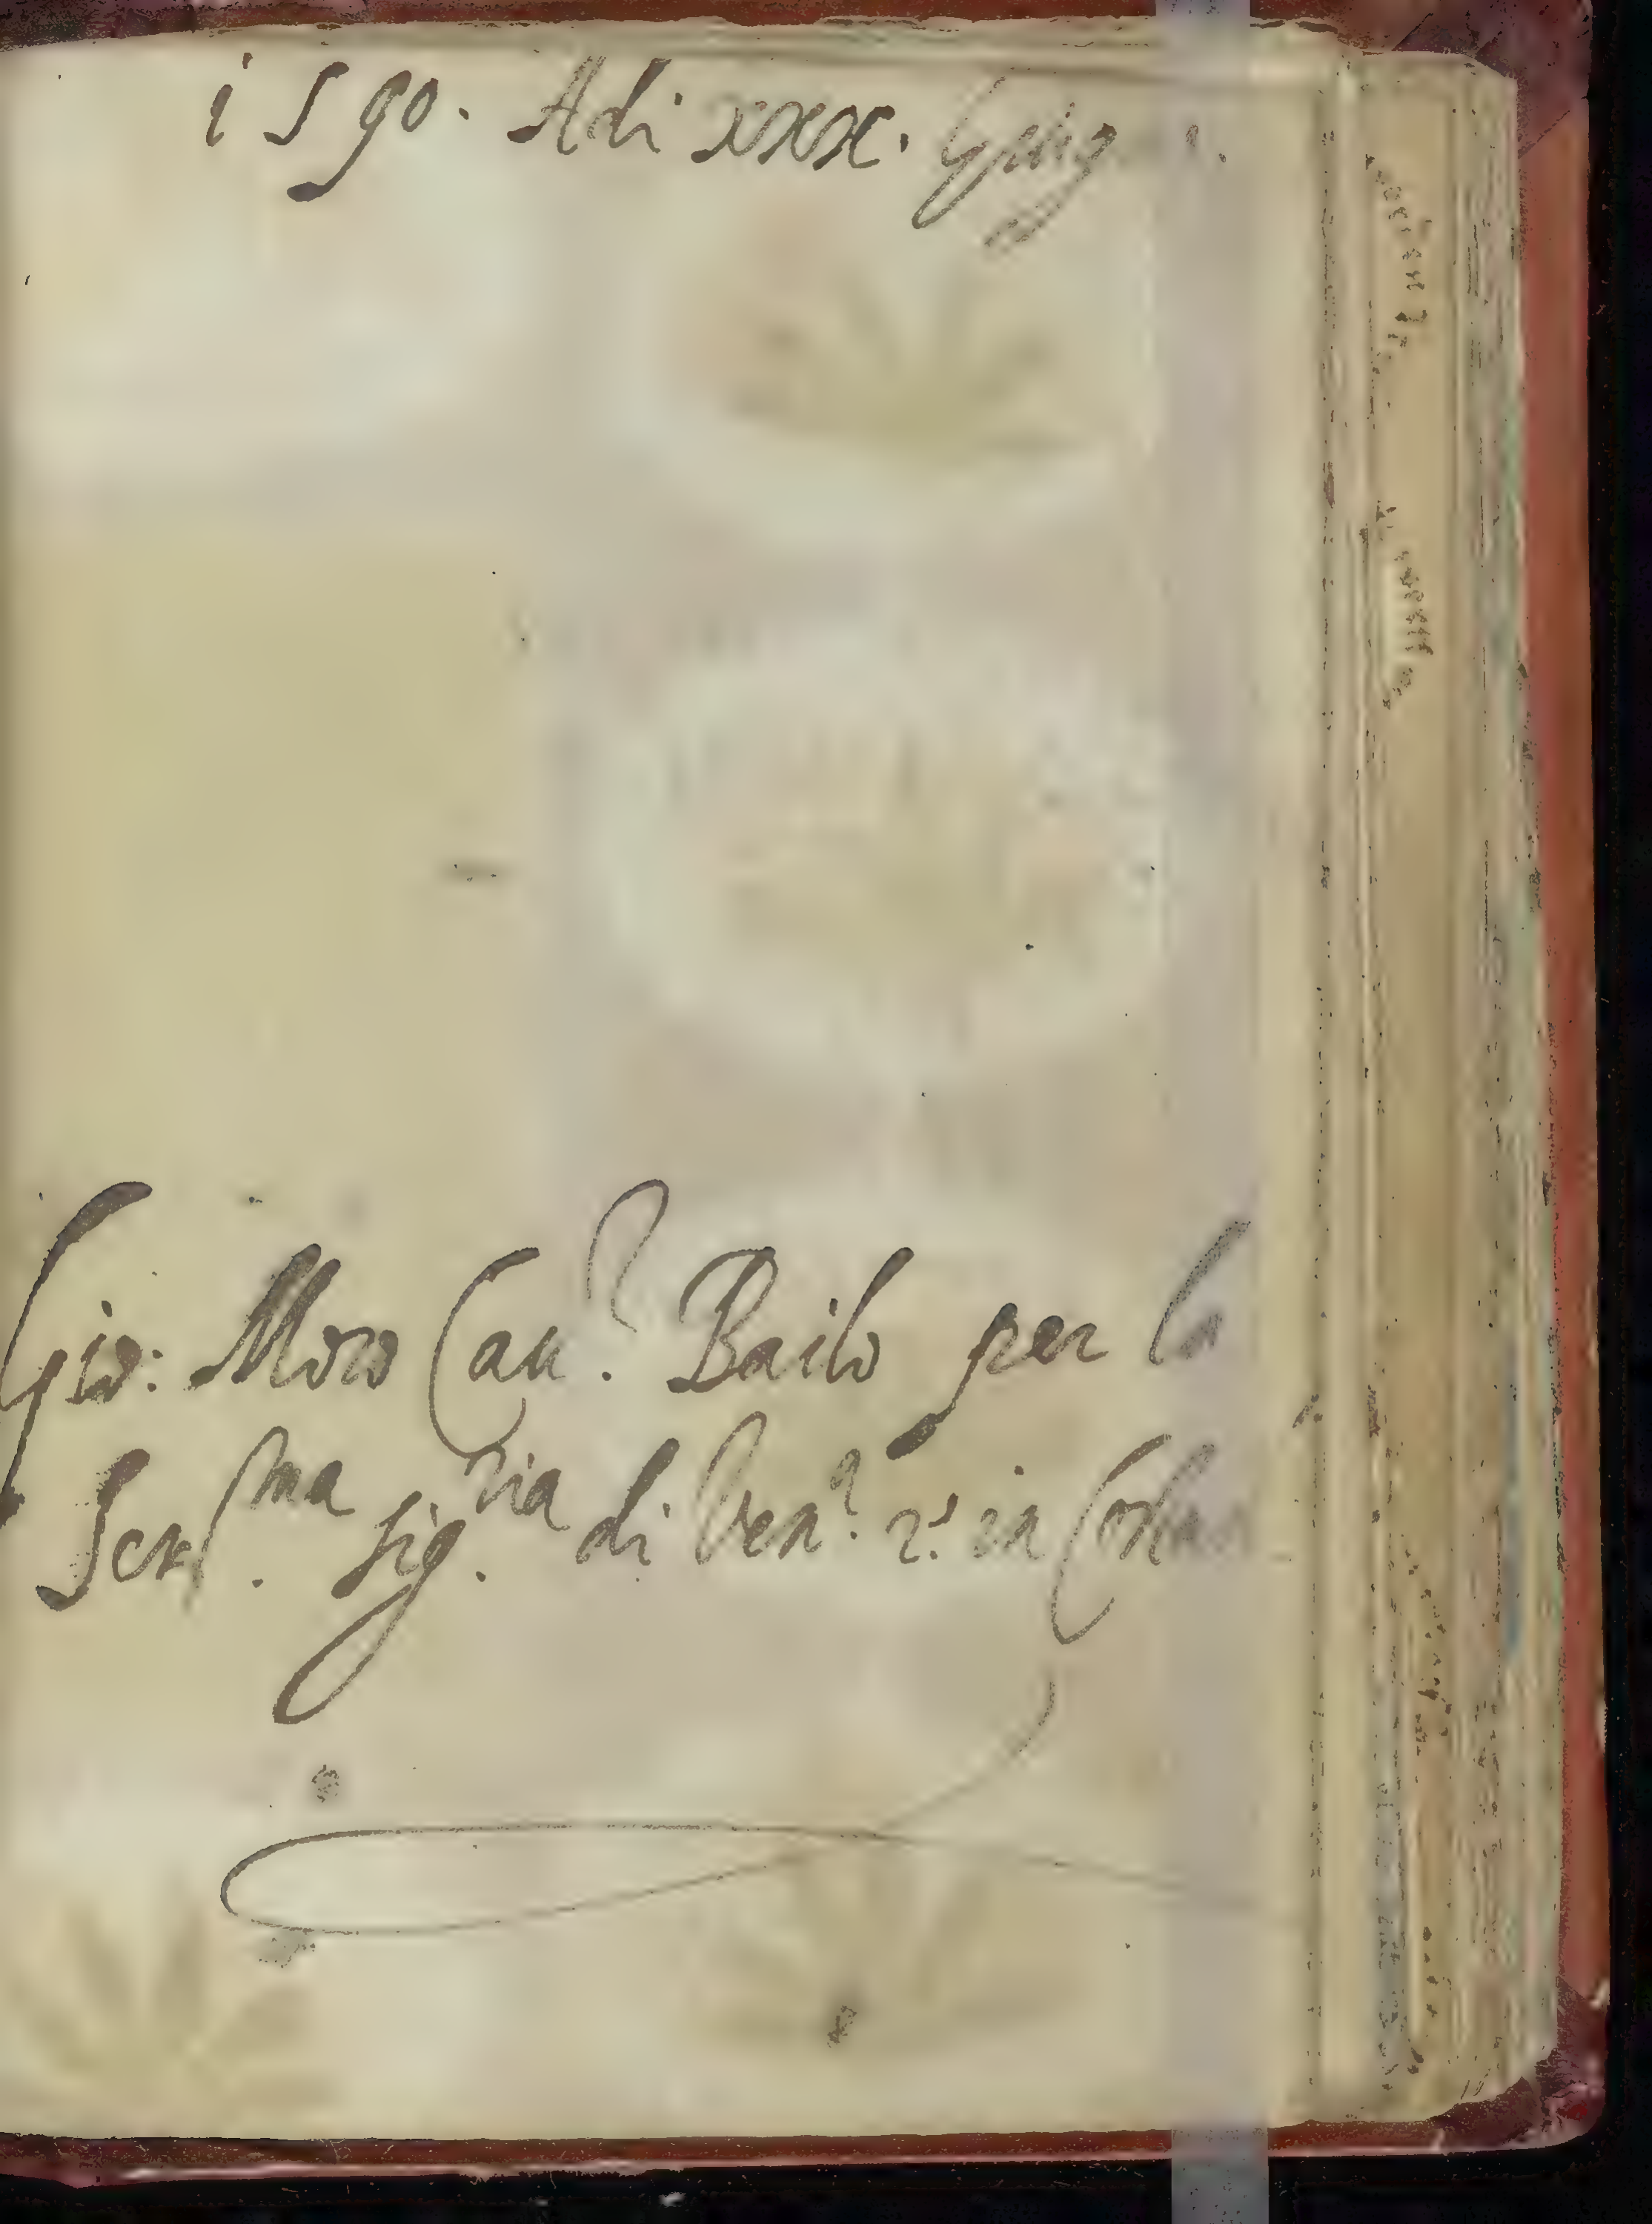 i590. Adi xxx.
Gio: Moro Cau.r Bailo per la
Ser.ma Sig.ria di Ven.a in